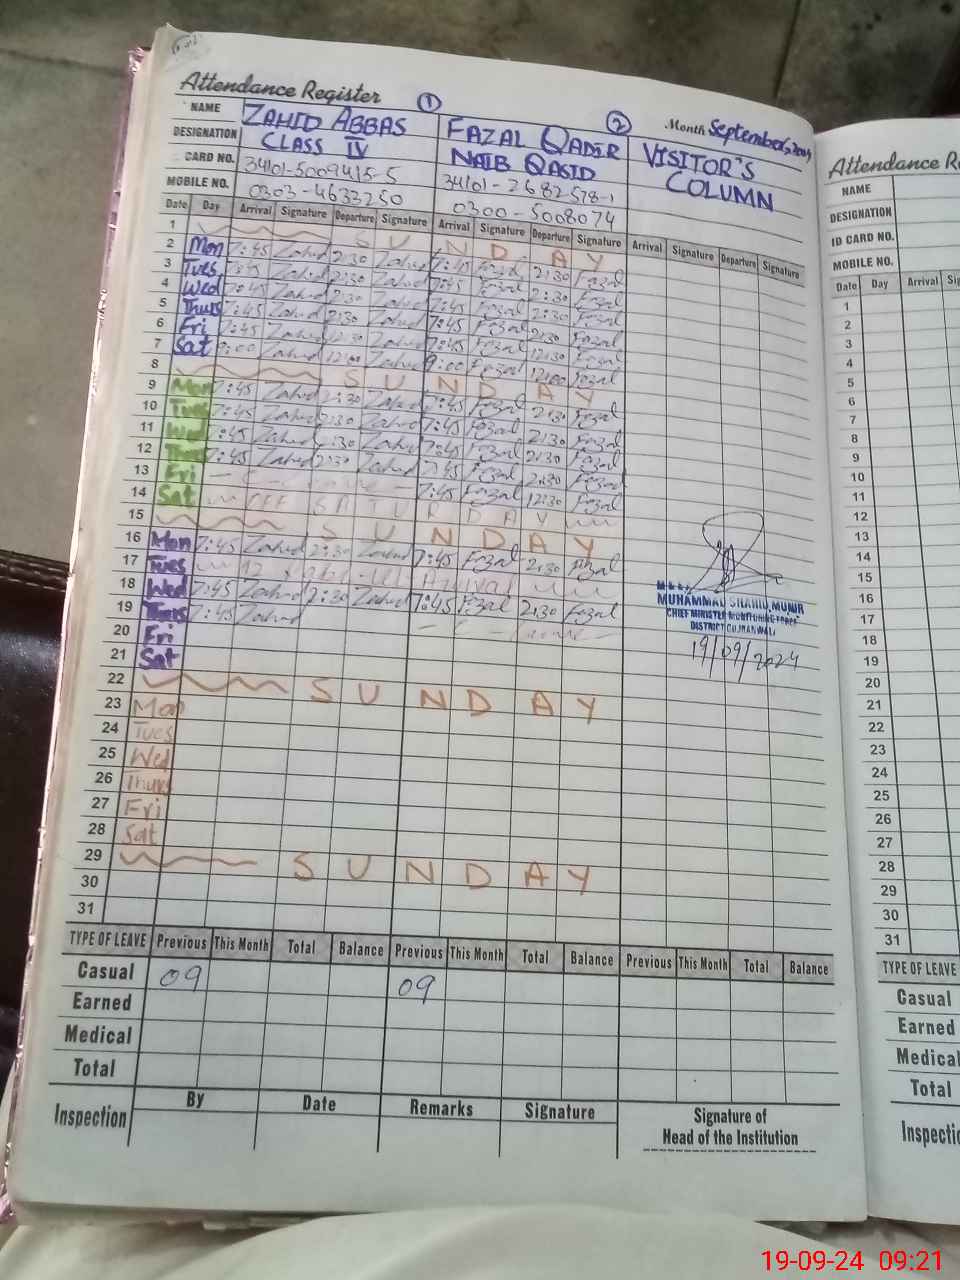 Attendance Register ① ② Month September, 2024
NAME ZAHID ABBAS FAZAL QADIR VISITOR'S
DESIGNATION CLASS IV NAIB QASID COLUMN
CARD NO. 34101-5009415-5 34101-2682578-1
MOBILE NO. 0303-4633250 0300-5008074
Date Day Arrival Signature Departure Signature Arrival Signature Departure Signature Arrival Signature Departure Signature
1 SUNDAY
2 Mon 7:45 Zahid 2:30 Zahid 7:45 Fazal 2:30 Fazal
3 Tues 7:45 Zahid 2:30 Zahid 7:45 Fazal 2:30 Fazal
4 Wed 7:45 Zahid 2:30 Zahid 7:45 Fazal 2:30 Fazal
5 Thurs 7:45 Zahid 2:30 Zahid 7:45 Fazal 2:30 Fazal
6 Fri 7:45 Zahid 12:30 Zahid 7:45 Fazal 12:30 Fazal
7 Sat 9:00 Zahid 12:00 Zahid 9:00 Fazal 12:00 Fazal
8 SUNDAY
9 Mon 7:45 Zahid 2:30 Zahid 7:45 Fazal 2:30 Fazal
10 Tues 7:45 Zahid 2:30 Zahid 7:45 Fazal 2:30 Fazal
11 Wed 7:45 Zahid 2:30 Zahid 7:45 Fazal 2:30 Fazal
12 Thurs 7:45 Zahid 2:30 Zahid 7:45 Fazal 2:30 Fazal
13 Fri C-Leave 7:45 Fazal 12:30 Fazal
14 Sat OFF SATURDAY
15 SUNDAY
16 Mon 7:45 Zahid 2:30 Zahid 7:45 Fazal 2:30 Fazal
17 Tues 12 Awal
18 Wed 7:45 Zahid 2:30 Zahid 7:45 Fazal 2:30 Fazal
19 Thurs 7:45 Zahid C-Leave
20 Fri
21 Sat
22 SUNDAY
23 Mon
24 Tues
25 Wed
26 Thurs
27 Fri
28 Sat
29 SUNDAY
30
31
MUHAMMAD SHAHID MUNIR
CHIEF MINISTER MONITORING FORCE
DISTRICT GUJRANWALA
19/09/2024
TYPE OF LEAVE Previous This Month Total Balance Previous This Month Total Balance Previous This Month Total Balance
Casual 09 09
Earned
Medical
Total
Inspection By Date Remarks Signature Signature of
Head of the Institution
Attendance R
NAME
DESIGNATION
ID CARD NO.
MOBILE NO.
Date Day Arrival
1
2
3
4
5
6
7
8
9
10
11
12
13
14
15
16
17
18
19
20
21
22
23
24
25
26
27
28
29
30
31
TYPE OF LEAVE
Casual
Earned
Medical
Total
Inspectio
19-09-24 09:21